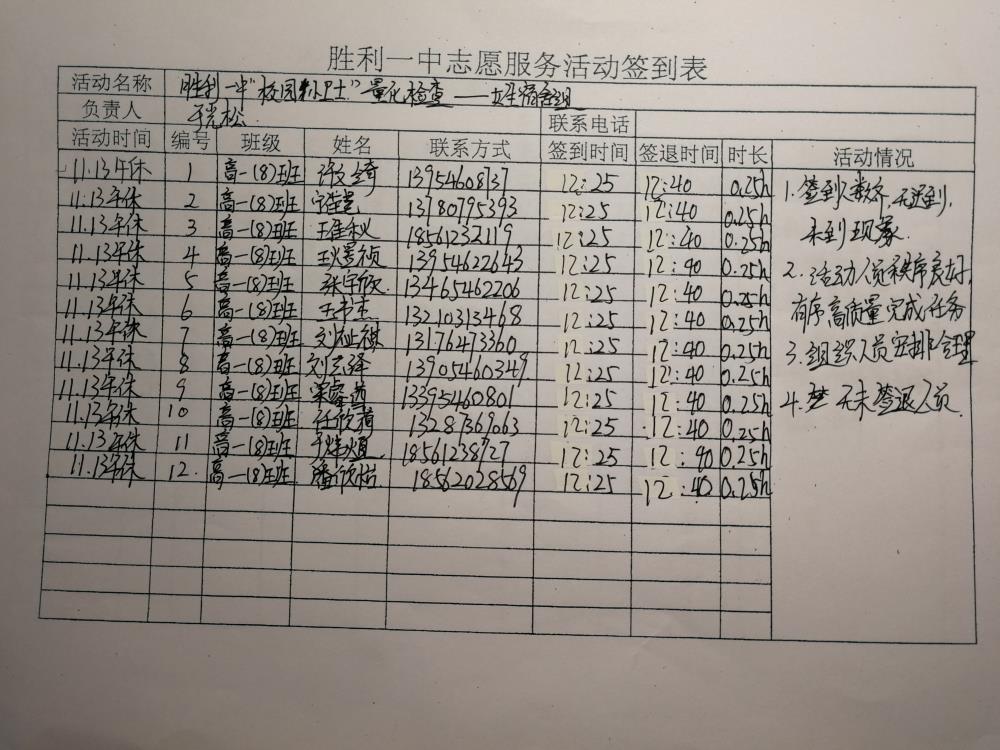 胜利一中志愿服务活动签到表
活动名称 胜利一中"校园小卫士"量化检查——女生宿舍组
负责人 于克松 联系电话
活动时间 编号 班级 姓名 联系方式 签到时间 签退时间 时长 活动情况
11.13午休 1 高一(8)班 13954608137 12:25 12:40 0.25h
11.13午休 2 高一(8)班 13780795393 12:25 12:40 0.25h
11.13午休 3 高一(8)班 王佳秋 18561232119 12:25 12:40 0.25h
11.13午休 4 高一(8)班 13954622643 12:25 12:40 0.25h
11.13午休 5 高一(8)班 张宇欣 13465462206 12:25 12:40 0.25h
11.13午休 6 高一(8)班 王书杰 13210313468 12:25 12:40 0.25h
11.13午休 7 高一(8)班 刘祉祺 13176473360 12:25 12:40 0.25h
11.13午休 8 高一(8)班 13905460349 12:25 12:40 0.25h
11.13午休 9 高一(8)班 13395460801 12:25 12:40 0.25h
11.13午休 10 高一(8)班 任欣 13281369063 12:25 12:40 0.25h
11.13午休 11 高一(8)班 18561238727 12:25 12:40 0.25h
11.13午休 12. 高一(8)班 潘欣 18562028569 12:25 12:40 0.25h
1. 签到人数齐,无迟到,
未到现象.
2. 活动人员秩序良好,
有序高质量完成任务
3. 组织人员安排合理
4. 无未签退人员.